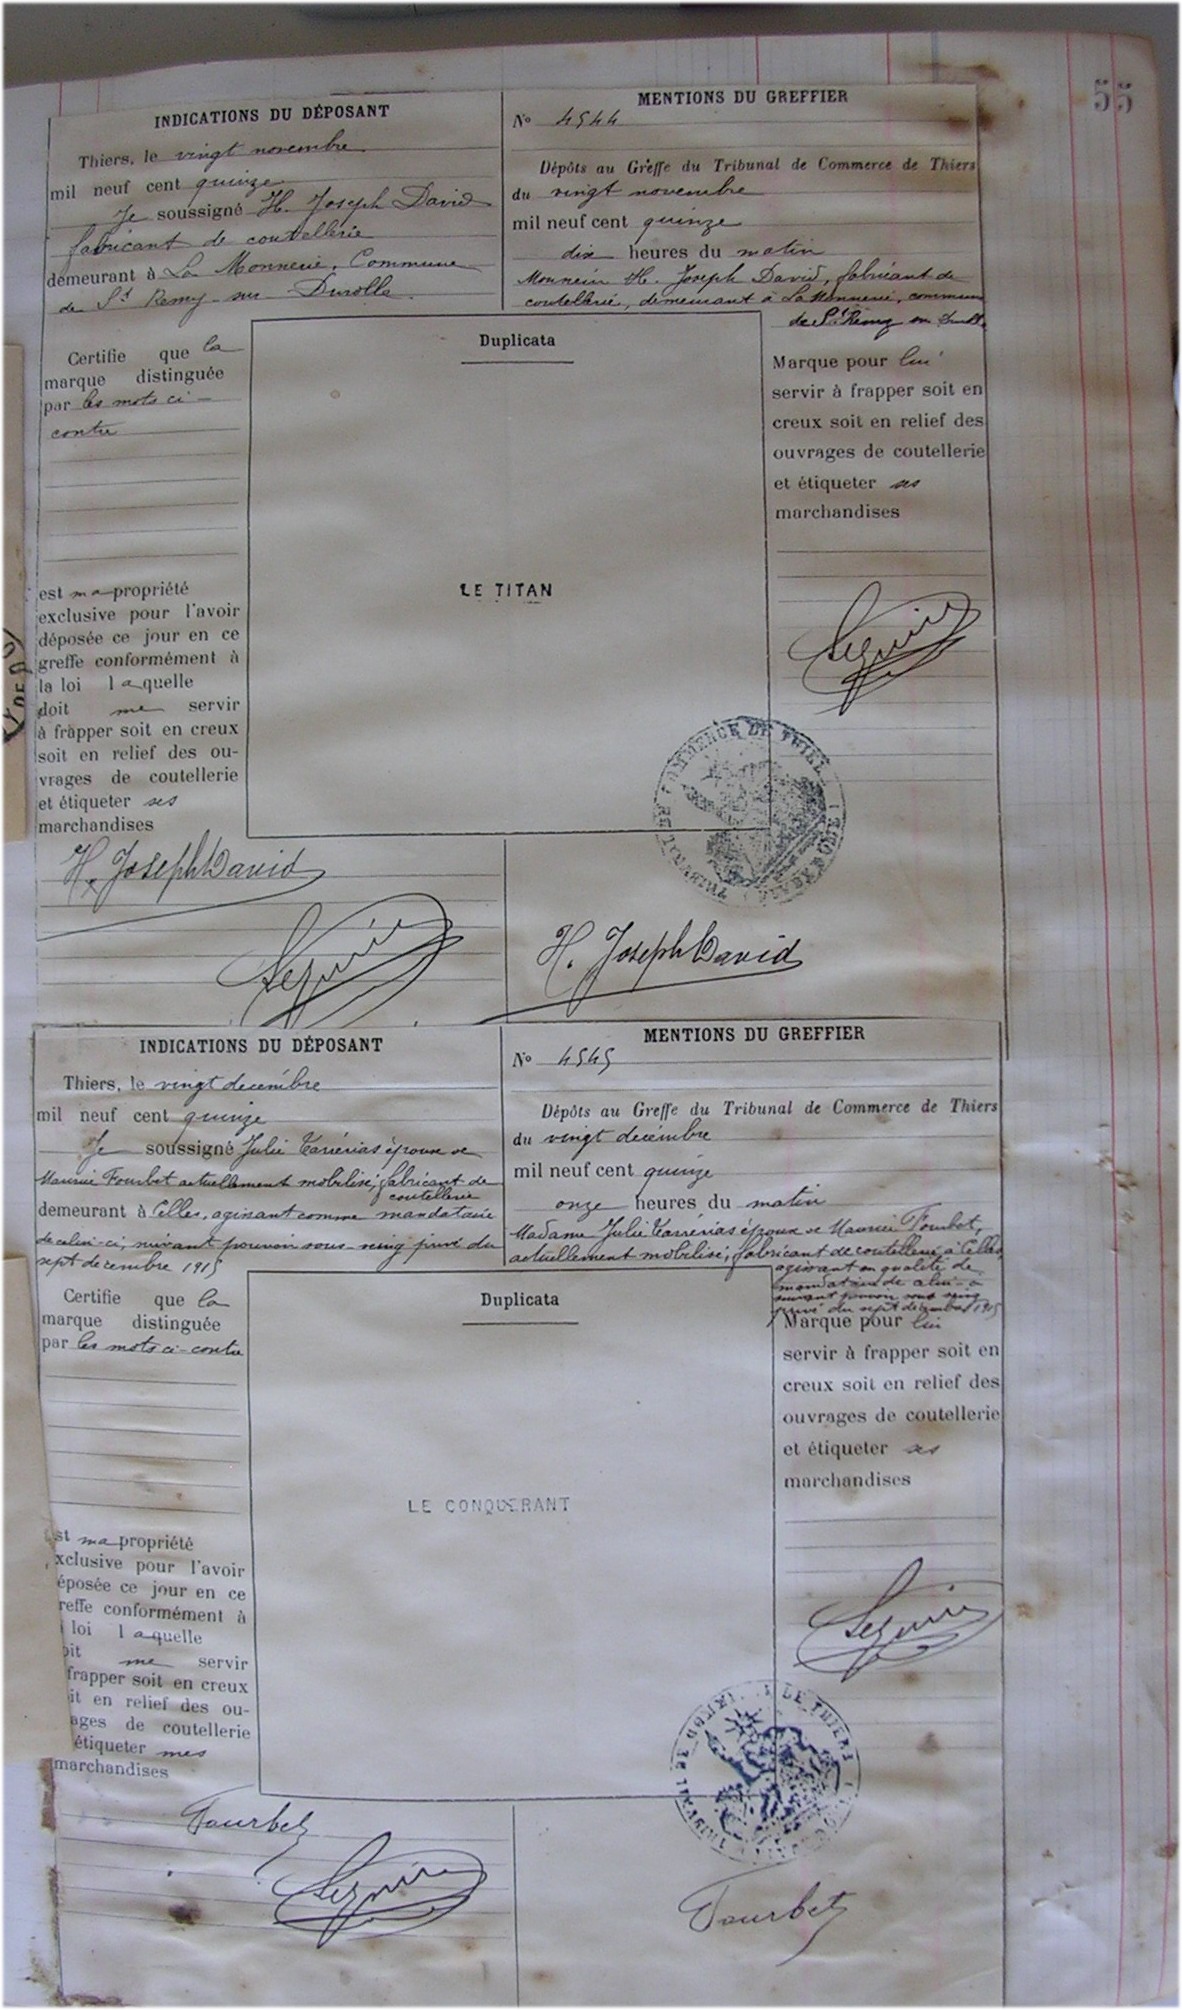 55
INDICATIONS DU DÉPOSANT
Thiers, le vingt novembre
mil neuf cent quinze
Je soussigné H. Joseph David
fabricant de coutellerie
demeurant à La Monnerie, Commune
de St Remy sur Durolle.
MENTIONS DU GREFFIER
No 4544
Dépôts au Greffe du Tribunal de Commerce de Thiers
du vingt novembre
mil neuf cent quinze
dix heures du matin
H. Joseph David, fabricant de
coutellerie, demeurant à La Monnerie, commune
de St Rémy
Certifie que la
marque distinguée
par les mots ci-
contre
est ma propriété
exclusive pour l'avoir
déposée ce jour en ce
greffe conformément à
la loi laquelle
doit me servir
à frapper soit en creux
soit en relief des ou-
vrages de coutellerie
et étiqueter ses
marchandises
Duplicata
LE TITAN
Marque pour lui
servir à frapper soit en
creux soit en relief des
ouvrages de coutellerie
et étiqueter ses
marchandises
TRIBUNAL DE COMMERCE DE THIERS
H. Joseph David
H. Joseph David
INDICATIONS DU DÉPOSANT
Thiers, le vingt decembre
mil neuf cent quinze
Je soussigné Julie Tarrérias épouse de
Maurice Fourbet actuellement mobilisé, fabricant de
coutellerie
demeurant à Celles, agissant comme mandataire
de celui-ci, suivant pouvoir sous-seing privé du
sept decembre 1915
MENTIONS DU GREFFIER
No 4545
Dépôts au Greffe du Tribunal de Commerce de Thiers
du vingt décembre
mil neuf cent quinze
onze heures du matin
Madame Julie Tarrerias épouse de Maurice Fourbet,
actuellement mobilisé, fabricant de coutellerie à Celles
agissant en qualité de
mandataire de celui-ci
suivant pouvoir sous seing
privé du sept décembre 1915
Certifie que la
marque distinguée
par les mots ci-contre
est ma propriété
xclusive pour l'avoir
éposée ce jour en ce
reffe conformément à
loi laquelle
oit me servir
frapper soit en creux
it en relief des ou-
ages de coutellerie
étiqueter mes
marchandises
Duplicata
LE CONQUERANT
Marque pour lui
servir à frapper soit en
creux soit en relief des
ouvrages de coutellerie
et étiqueter ses
marchandises
Fourbet
Fourbet